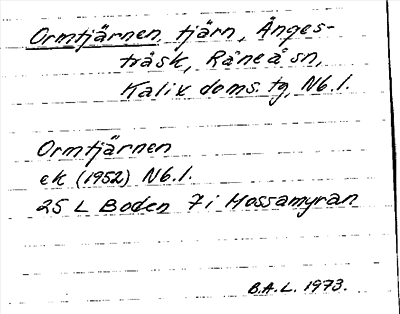 Ormtjärnen, tjärn, Ånges-
träsk, Råneå sn,
Kalix doms. tg, Nb. l.
Ormtjärnen
ek (1952) Nb. l.
25 L Boden 7 i Mossamyran
B.A.L. 1973.